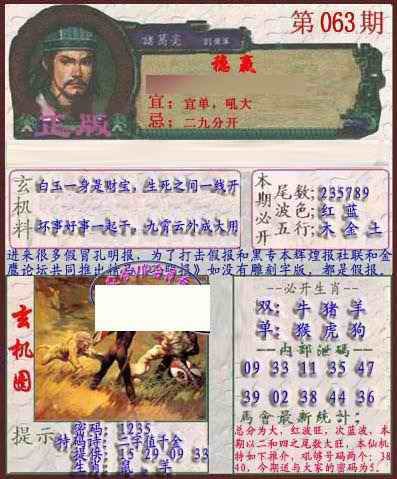 第063期
諸葛亮
稳赢
宜：宜单，吼大
忌：二九分开
正版
玄机料
白玉一身是财宝，生死之间一线开
坏事好事一起干，九霄云外成大用
本期必开
尾数：235789
波色：红 蓝
五行：木 金 土
进来很多假冒孔明报，为了打击假报和黑专本辉煌报社联和金
鹰论坛共同推出
》如没有雕刻字版，都是假报。
玄机图
--必开生肖--
双：牛 猪 羊
单：猴 虎 狗
--内部泄码--
09 33 11 35 47
39 02 38 44 36
馬會最新統計：
总分为大，红波旺，次蓝波，本
期以二和四之尾数大旺，本仙机
特如下推介，吼够号码两个：38
40，今期送与大家的密码为5.
提示
密码：1235
特码诗：二字值千金
提供：15 29 09 33
生肖：鼠，羊